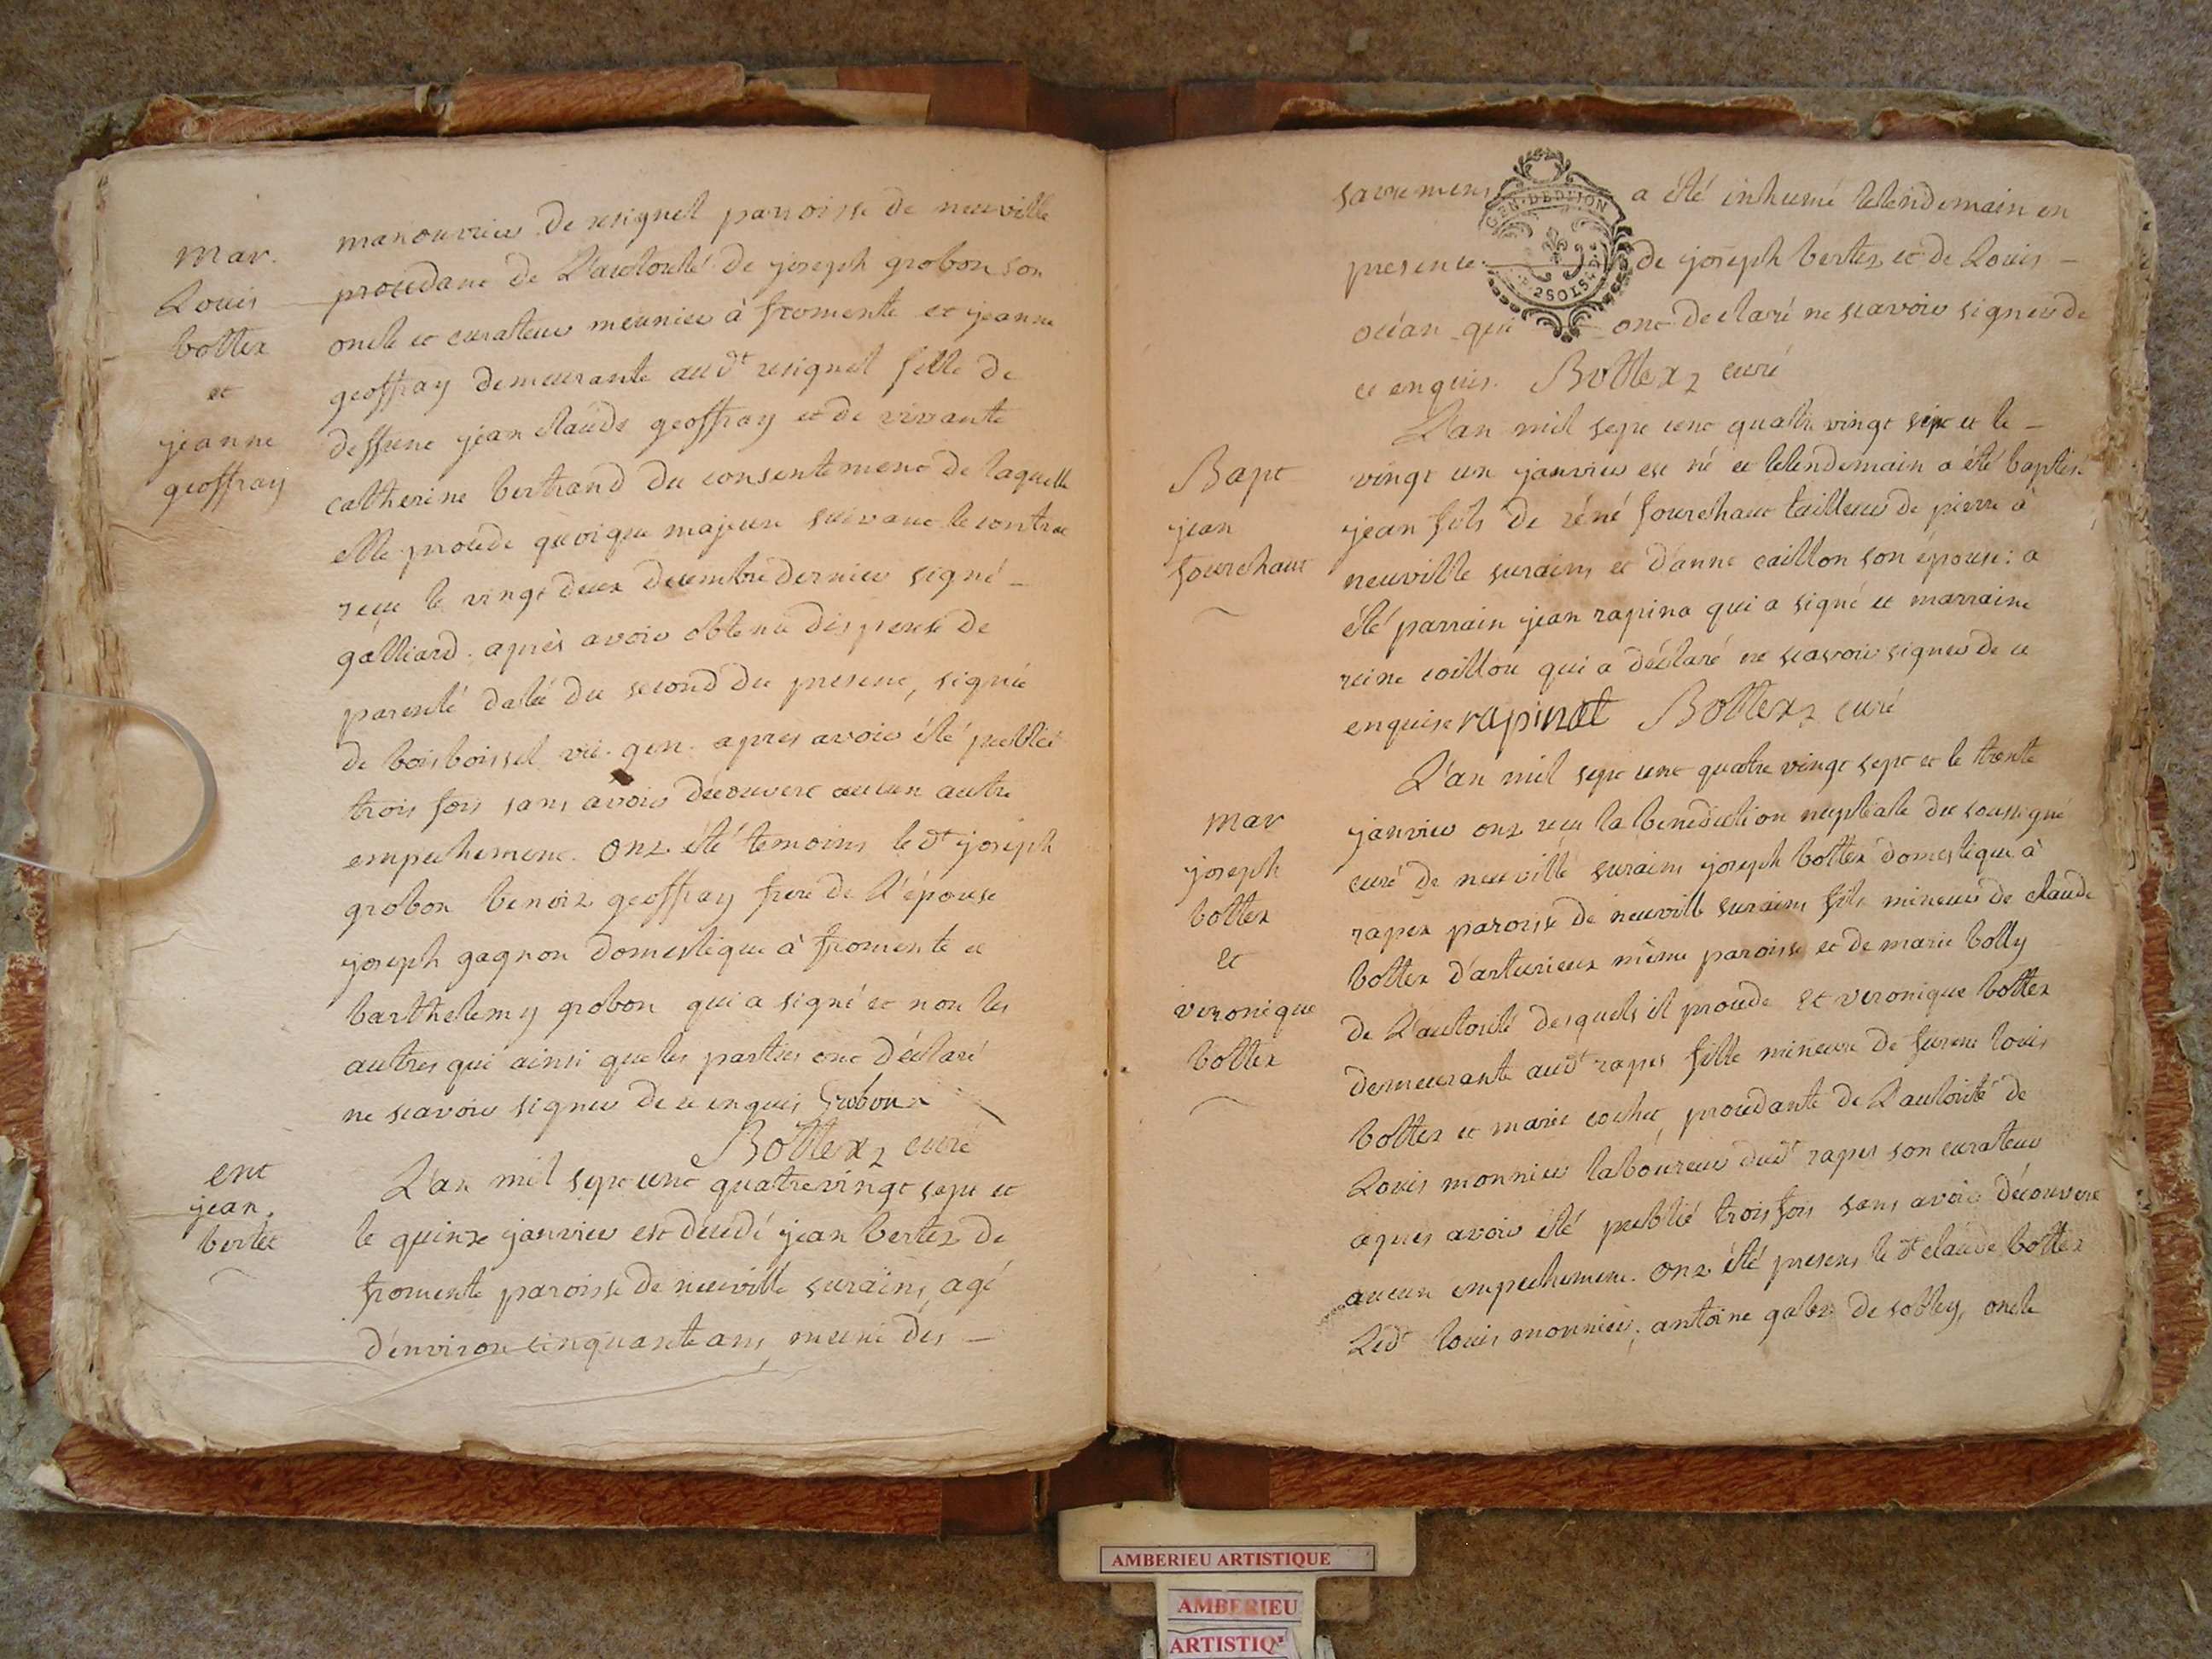 mar.
Louis
bottex
et
jeanne
geoffray
manouvrier de resignel parroisse de neuville
procedant de L'authorité de joseph grobon son
oncle et curateur meunier à fromente et jeanne
geoffray demeurante aud.t resignel fille de
deffunt jean claude geoffray et de vivante
catherine bertrand du consentement de laquelle
elle procede quoique majeure suivant le contrac
reçu le vingt deux decembre dernier signé -
galliard. après avoir obtenu dispense de
parenté datée du second du present, signée
de boisboissel vic. gen. apres avoir été publiés
trois fois sans avoir découvert aucun autre
empechement. onz été temoins le d.t joseph
grobon benoiz geoffray frere de L'épouse
joseph gagnon domestique à fromente et
barthelemy grobon qui a signé et non les
autres qui ainsi que les parties ont déclaré
ne scavoir signer de ce enquis Grobon
Bottex, curé
ent
jean
bertet
L'an mil sept cent quatre vingt sept et
le quinze janvier est decedé jean bertez de
fromente paroisse de neuville surains, agé
d'environ cinquante ans, muni des -
sacremens a été inhumé lelendemain en
presence de joseph bertez et de Louis -
océan qui ont declaré ne scavoir signer de
ce enquis. Bottex, curé
GEN. DE DIJON
2 SOLS
Bapt
jean
fourchaut
L'an mil sept cent quatre vingt sept et le -
vingt un janvier est né et lelendemain a été baptisé
jean fils de réné fourchaut tailleur de pierre à
neuville surains et d'anne caillon son épouse: a
été parrain jean rapina qui a signé et marraine
reine caillon qui a déclaré ne scavoir signer de ce
enquise rapinat Bottex, curé
mar
joseph
bottex
et
veronique
bottex
L'an mil sept cent quatre vingt sept et le trente
janvier onz reçu la benediction nuptiale du soussigné
curé de neuville surains joseph bottex domestique à
rapex paroisse de neuville surains fils mineur de claude
bottex d'arturieux même paroisse et de marie bolly
de L'autorité desquels il procede et veronique bottex
demeurante aud.t rapes fille mineure de furent louis
bottex et marie cochet, procedante de L'autorité de
Louis monnier laboureur dud.t rapes son curateur
apres avoir été publié trois fois sans avoir découvert
aucun empechement. onz été presens le d.t claude bottex
Led.t louis monnier, antoine de solley, oncle
AMBERIEU ARTISTIQUE
AMBERIEU
ARTISTIQ